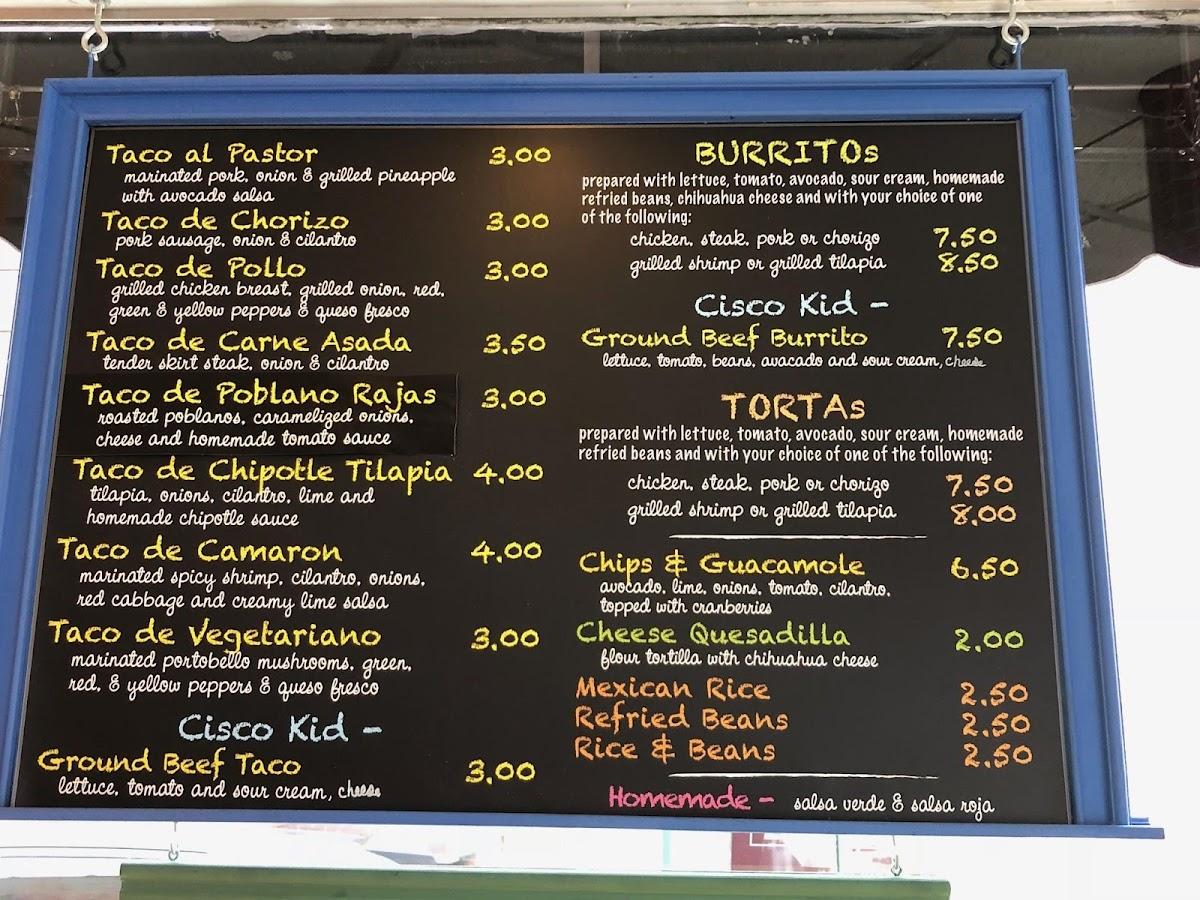 Taco al Pastor 3.00
marinated pork, onion & grilled pineapple
with avocado salsa
Taco de Chorizo 3.00
pork sausage, onion & cilantro
Taco de Pollo 3.00
grilled chicken breast, grilled onion, red,
green & yellow peppers & queso fresco
Taco de Carne Asada 3.50
tender skirt steak, onion & cilantro
Taco de Poblano Rajas 3.00
roasted poblanos, caramelized onions,
cheese and homemade tomato sauce
Taco de Chipotle Tilapia 4.00
tilapia, onions, cilantro, lime and
homemade chipotle sauce
Taco de Camaron 4.00
marinated spicy shrimp, cilantro, onions,
red cabbage and creamy lime salsa
Taco de Vegetariano 3.00
marinated portobello mushrooms, green,
red, & yellow peppers & queso fresco
Cisco Kid -
Ground Beef Taco 3.00
lettuce, tomato and sour cream, cheese
BURRITOs
prepared with lettuce, tomato, avocado, sour cream, homemade
refried beans, chihuahua cheese and with your choice of one
of the following:
chicken, steak, pork or chorizo 7.50
grilled shrimp or grilled tilapia 8.50
Cisco Kid -
Ground Beef Burrito 7.50
lettuce, tomato, beans, avacado and sour cream, cheese
TORTAs
prepared with lettuce, tomato, avocado, sour cream, homemade
refried beans and with your choice of one of the following:
chicken, steak, pork or chorizo 7.50
grilled shrimp or grilled tilapia 8.00
Chips & Guacamole 6.50
avocado, lime, onions, tomato, cilantro,
topped with cranberries
Cheese Quesadilla 2.00
flour tortilla with chihuahua cheese
Mexican Rice 2.50
Refried Beans 2.50
Rice & Beans 2.50
Homemade - salsa verde & salsa roja